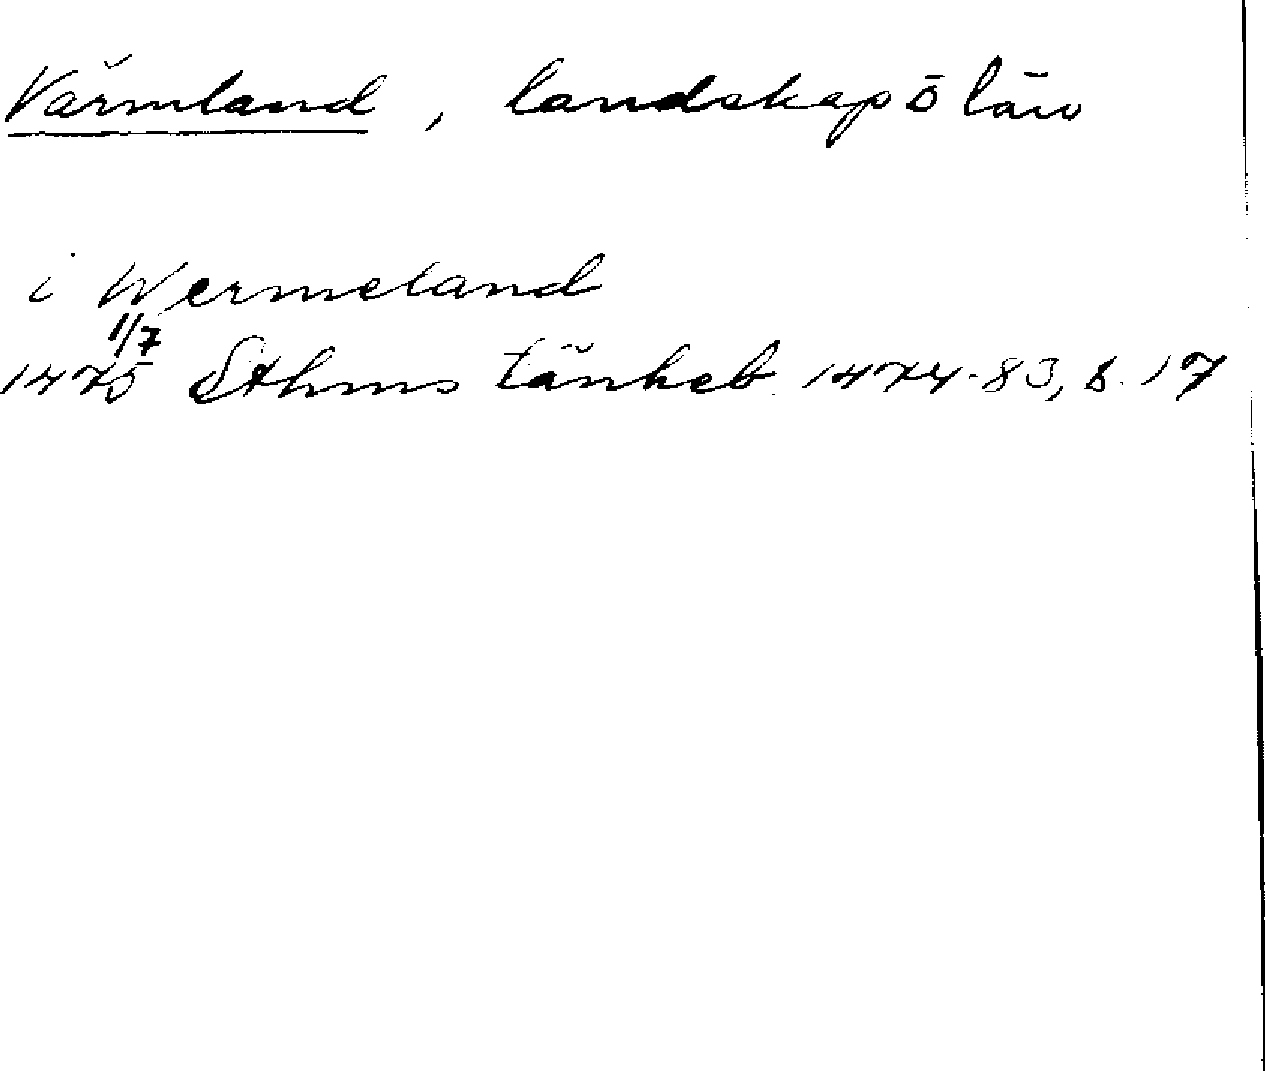 Värmland, landskap ö län
i Wermeland
1/7
1475 Sthms tänkeb. 1474-83, s. 17